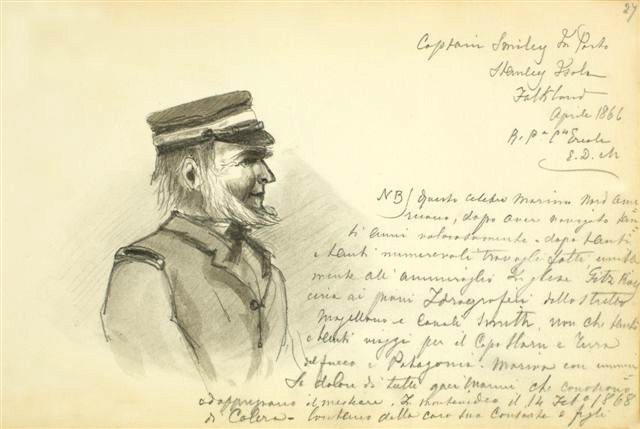 27
Captain Smiley In Porto
Stanley Isola
Falkland
Aprile 1866
R. Pa Cta Ercole
E. D. M
NB/ Questo celebre Marino Nord ame=
ricano, dopo aver navigato tan=
ti anni valorosamente e dopo tanti
e tanti numerevoli travagli fatti unita
mente all' ammiraglio Inglese Fitz Roy
circa ai piani Idrografici dello stretto
Magellano e Canali Smith, non che tanti
e tanti viaggi per il Capo Horn e Terra
del fuoco e Patagonia. Moriva con immen
so dolore di tutti quei marini che conoscono
ed apprezzano il mestiere. In Montevideo il 14 Febo 1868
di Colera - lontano dalla cara sua Consorte e figli